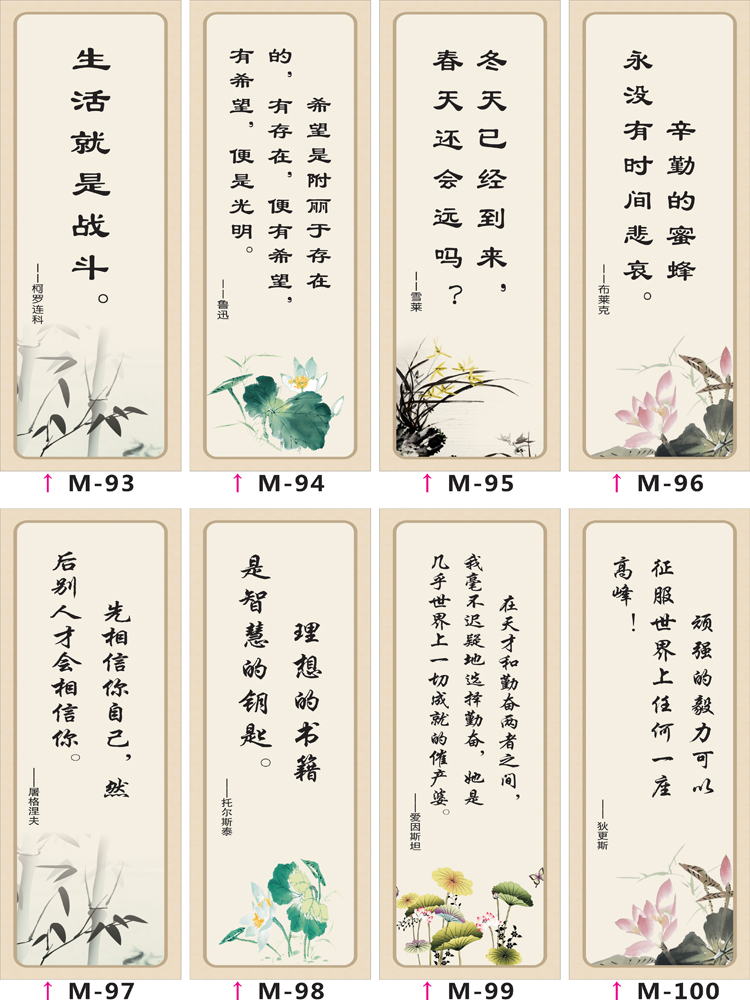 生活就是战斗。
——柯罗连科
↑ M-93
希望是附丽于存在
的，有存在，便有希望，
有希望，便是光明。
——鲁迅
↑ M-94
冬天已经到来，
春天还会远吗？
——雪莱
↑ M-95
辛勤的蜜蜂
永没有时间悲哀。
——布莱克
↑ M-96
先相信你自己，然
后别人才会相信你。
——屠格涅夫
↑ M-97
理想的书籍
是智慧的钥匙。
——托尔斯泰
↑ M-98
在天才和勤奋两者之间，
我毫不迟疑地选择勤奋，她是
几乎世界上一切成就的催产婆。
——爱因斯坦
↑ M-99
顽强的毅力可以
征服世界上任何一座
高峰！
——狄更斯
↑ M-100